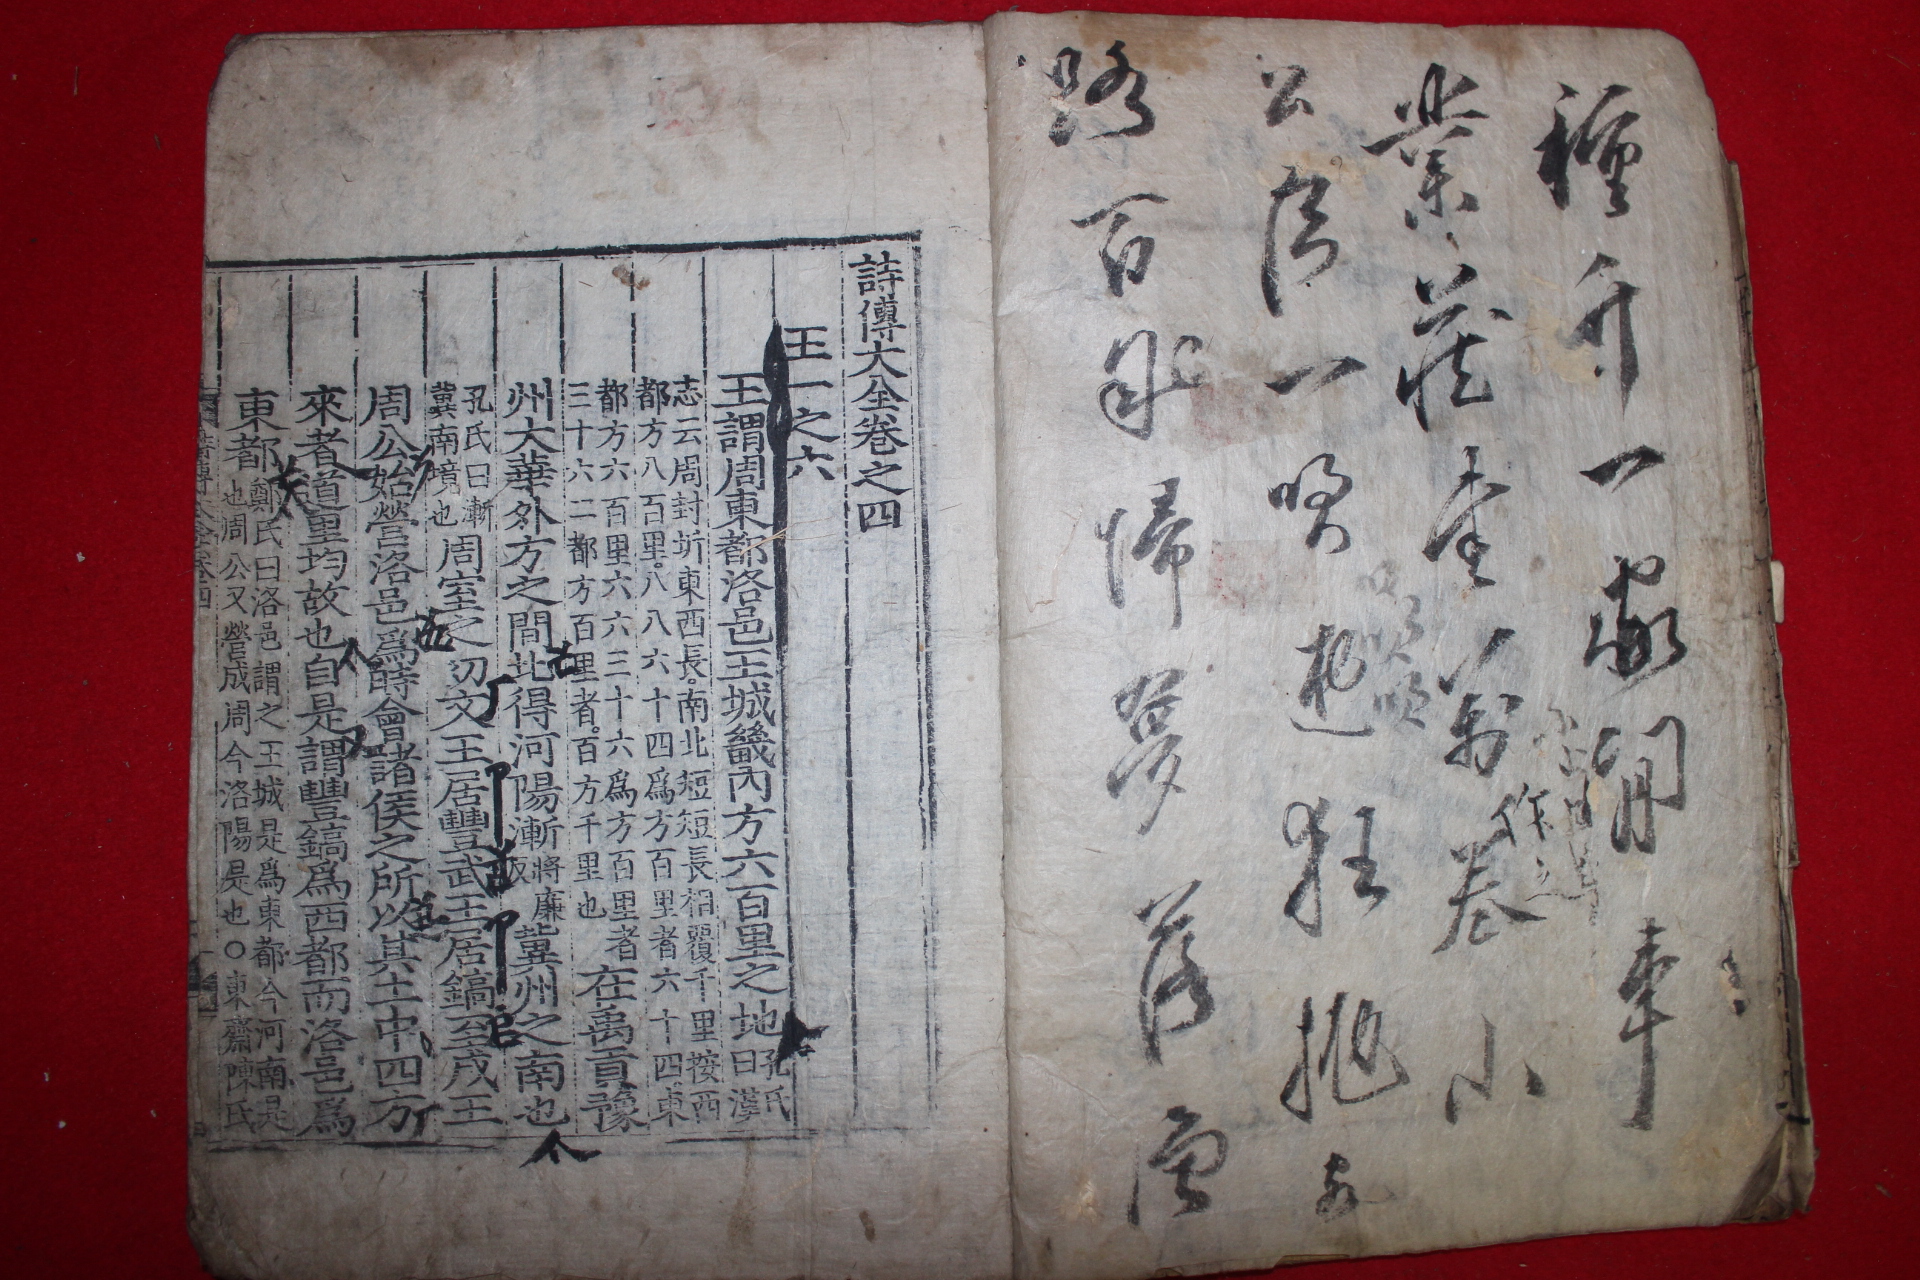 種竹一家閒事
業藏書萬卷小
公侯一笑狂拋
路百年歸夢落
詩傳大全卷之四
王一之六
王謂周東都洛邑王城畿內方六百里之地孔氏曰漢
志云周封圻東西長南北短短長相覆千里按西
都方八百里八八六十四爲方百里者六十四東
都方六百里六六三十六爲方百里者
三十六二都方百里者百方千里也
在禹貢豫
州大華外方之間北得河陽漸將廉反冀州之南也
孔氏曰漸
冀南境也周室之初文王居豐武王居鎬至成王
周公始營洛邑爲時會諸侯之所以其土中四方
來者道里均故也自是謂豐鎬爲西都而洛邑爲
東都鄭氏曰洛邑謂之王城是爲東都今河南是
也周公又營成周今洛陽是也○東齋陳氏